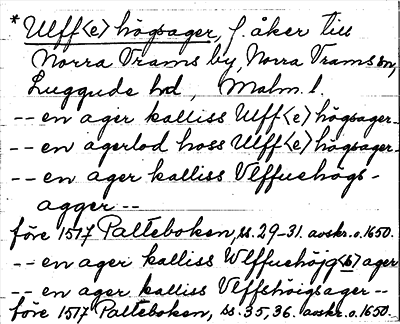 * Ulff<e>högsager, f. åker till
Norra Vrams by, Norra Vrams sn,
Luggude hd, Malm. l.
-- en ager kalliss Ulff<e>högsager --
-- en agerlod hoss Ulff<e>högsager --
-- en ager kalliss Vlffuehögs-
agger --
före 1517 Palteboken, ss. 29-31. avskr. o. 1650.
-- en ager kalliss Wlffuehöjg<s>ager
-- en ager kalliss Vlffshöigsager --
före 1517 Palteboken, ss. 35, 36. avskr. o. 1650.